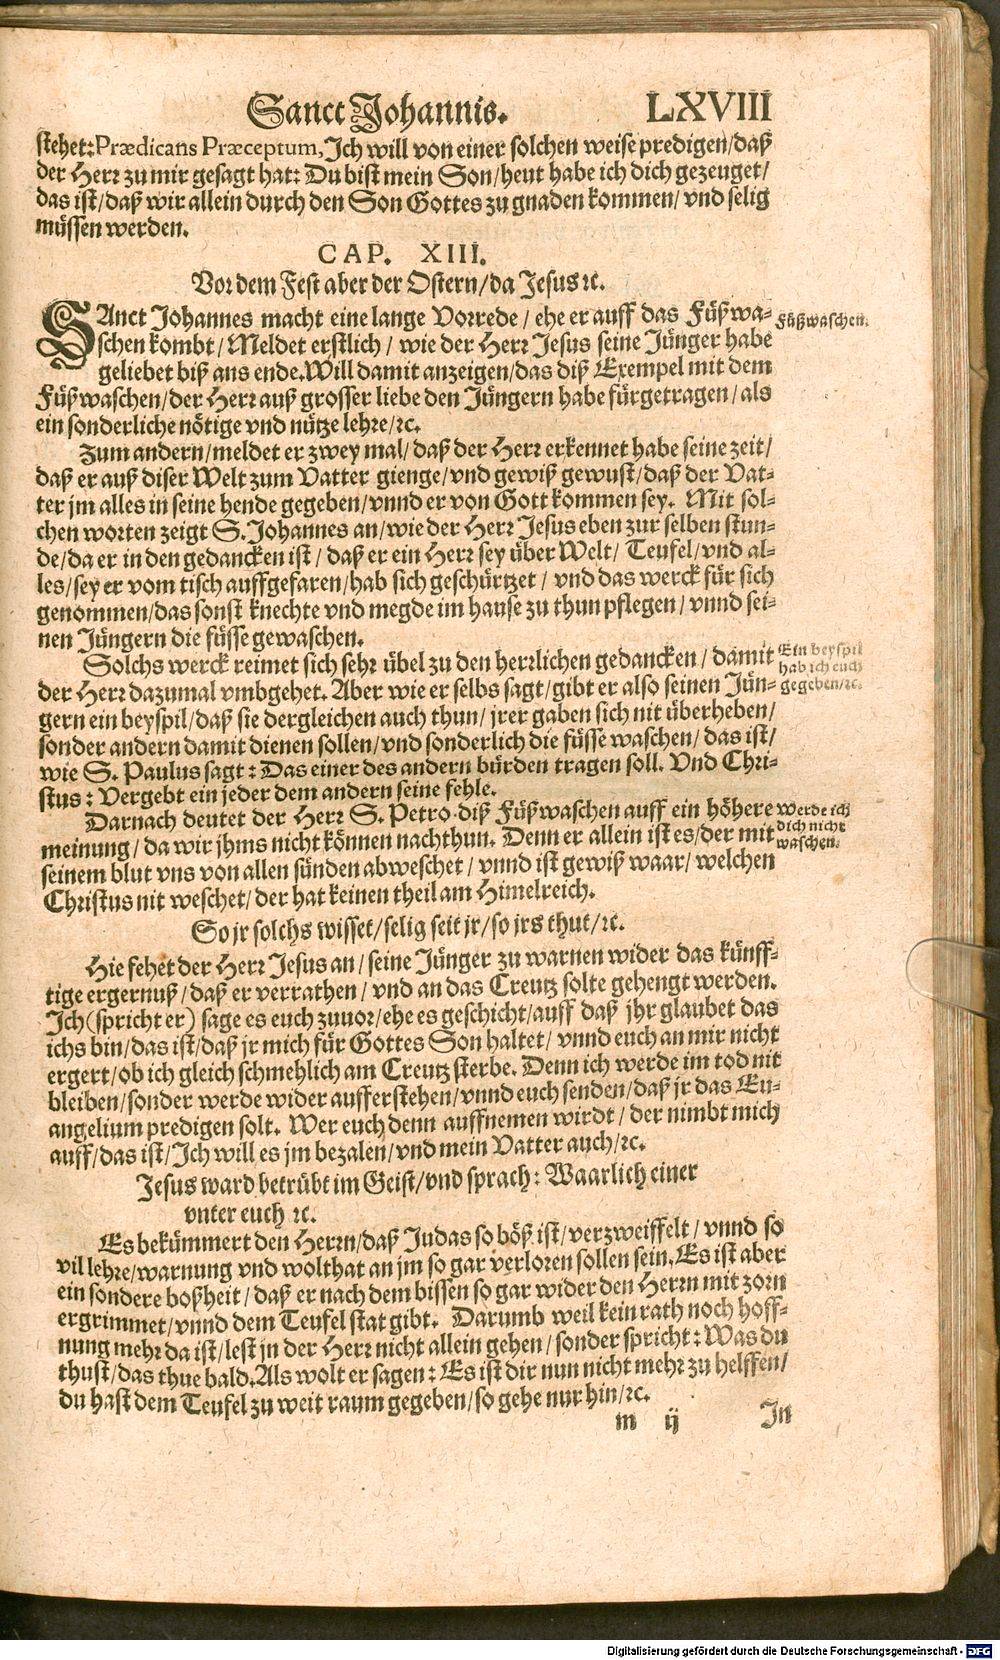 Sanct Johannis. LXVIII
stehet: Prædicans Præceptum, Ich will von einer solchen weise predigen/daß
der Herr zu mir gesagt hat: Du bist mein Son/heut habe ich dich gezeuget/
das ist/daß wir allein durch den Son Gottes zu gnaden kommen/vnd selig
müssen werden.
CAP. XIII.
Vor dem Fest aber der Ostern/da Jesus ꝛc.
SAnct Johannes macht eine lange Vorrede/ehe er auff das Füßwa-
schen kombt/Meldet erstlich/wie der Herr Jesus seine Jünger habe
geliebet biß ans ende. Will damit anzeigen/das diß Exempel mit dem
Füßwaschen/der Herr auß grosser liebe den Jüngern habe fürgetragen/als
ein sonderliche nötige vnd nütze lehre/ꝛc.
Füßwaschen.
Zum andern/meldet er zwey mal/daß der Herr erkennet habe seine zeit/
daß er auß diser Welt zum Vatter gienge/vnd gewiß gewust/daß der Vat-
ter jm alles in seine hende gegeben/vnnd er von Gott kommen sey. Mit sol-
chen worten zeigt S. Johannes an/wie der Herr Jesus eben zur selben stun-
de/da er in den gedancken ist/daß er ein Herr sey über Welt/Teufel/vnd al-
les/sey er vom tisch auffgefaren/hab sich geschürtzet/vnd das werck für sich
genommen/das sonst knechte vnd megde im hause zu thun pflegen/vnnd sei-
nen Jüngern die füsse gewaschen.
Solchs werck reimet sich sehr übel zu den herrlichen gedancken/damit
der Herr dazumal vmbgehet. Aber wie er selbs sagt/gibt er also seinen Jün-
gern ein beyspil/daß sie dergleichen auch thun/jrer gaben sich nit überheben/
sonder andern damit dienen sollen/vnd sonderlich die füsse waschen/das ist/
wie S. Paulus sagt: Das einer des andern bürden tragen soll. Vnd Chri-
stus: Vergebt ein jeder dem andern seine fehle.
Ein beyspil
hab ich euch
gegeben/ꝛc.
Darnach deutet der Herr S. Petro diß Füßwaschen auff ein höhere
meinung/da wir jhms nicht können nachthun. Denn er allein ist es/der mit
seinem blut vns von allen sünden abweschet/vnnd ist gewiß waar/welchen
Christus nit weschet/der hat keinen theil am Himelreich.
Werde ich
dich nicht
waschen.
So jr solchs wisset/selig seit jr/so jrs thut/ꝛc.
Hie fehet der Herr Jesus an/seine Jünger zu warnen wider das künff-
tige ergernuß/daß er verrathen/vnd an das Creutz solte gehengt werden.
Ich (spricht er) sage es euch zuuor/ehe es geschicht/auff daß jhr glaubet das
ichs bin/das ist/daß jr mich für Gottes Son haltet/vnnd euch an mir nicht
ergert/ob ich gleich schmehlich am Creutz sterbe. Denn ich werde im tod nit
bleiben/sonder werde wider aufferstehen/vnnd euch senden/daß jr das Eu-
angelium predigen solt. Wer euch denn auffnemen wirdt/der nimbt mich
auff/das ist/Ich will es jm bezalen/vnd mein Vatter auch/ꝛc.
Jesus ward betrübt im Geist/vnd sprach: Waarlich einer
vnter euch ꝛc.
Es bekümmert den Herrn/daß Judas so böß ist/verzweiffelt/vnnd so
vil lehre/warnung vnd wolthat an jm so gar verloren sollen sein. Es ist aber
ein sondere boßheit/daß er nach dem bissen so gar wider den Herrn mit zorn
ergrimmet/vnnd dem Teufel stat gibt. Darumb weil kein rath noch hoff-
nung mehr da ist/lest jn der Herr nicht allein gehen/sonder spricht: Was du
thust/das thue bald. Als wolt er sagen: Es ist dir nun nicht mehr zu helffen/
du hast dem Teufel zu weit raum gegeben/so gehe nur hin/ꝛc.
m ij In
Digitalisierung gefördert durch die Deutsche Forschungsgemeinschaft - DFG